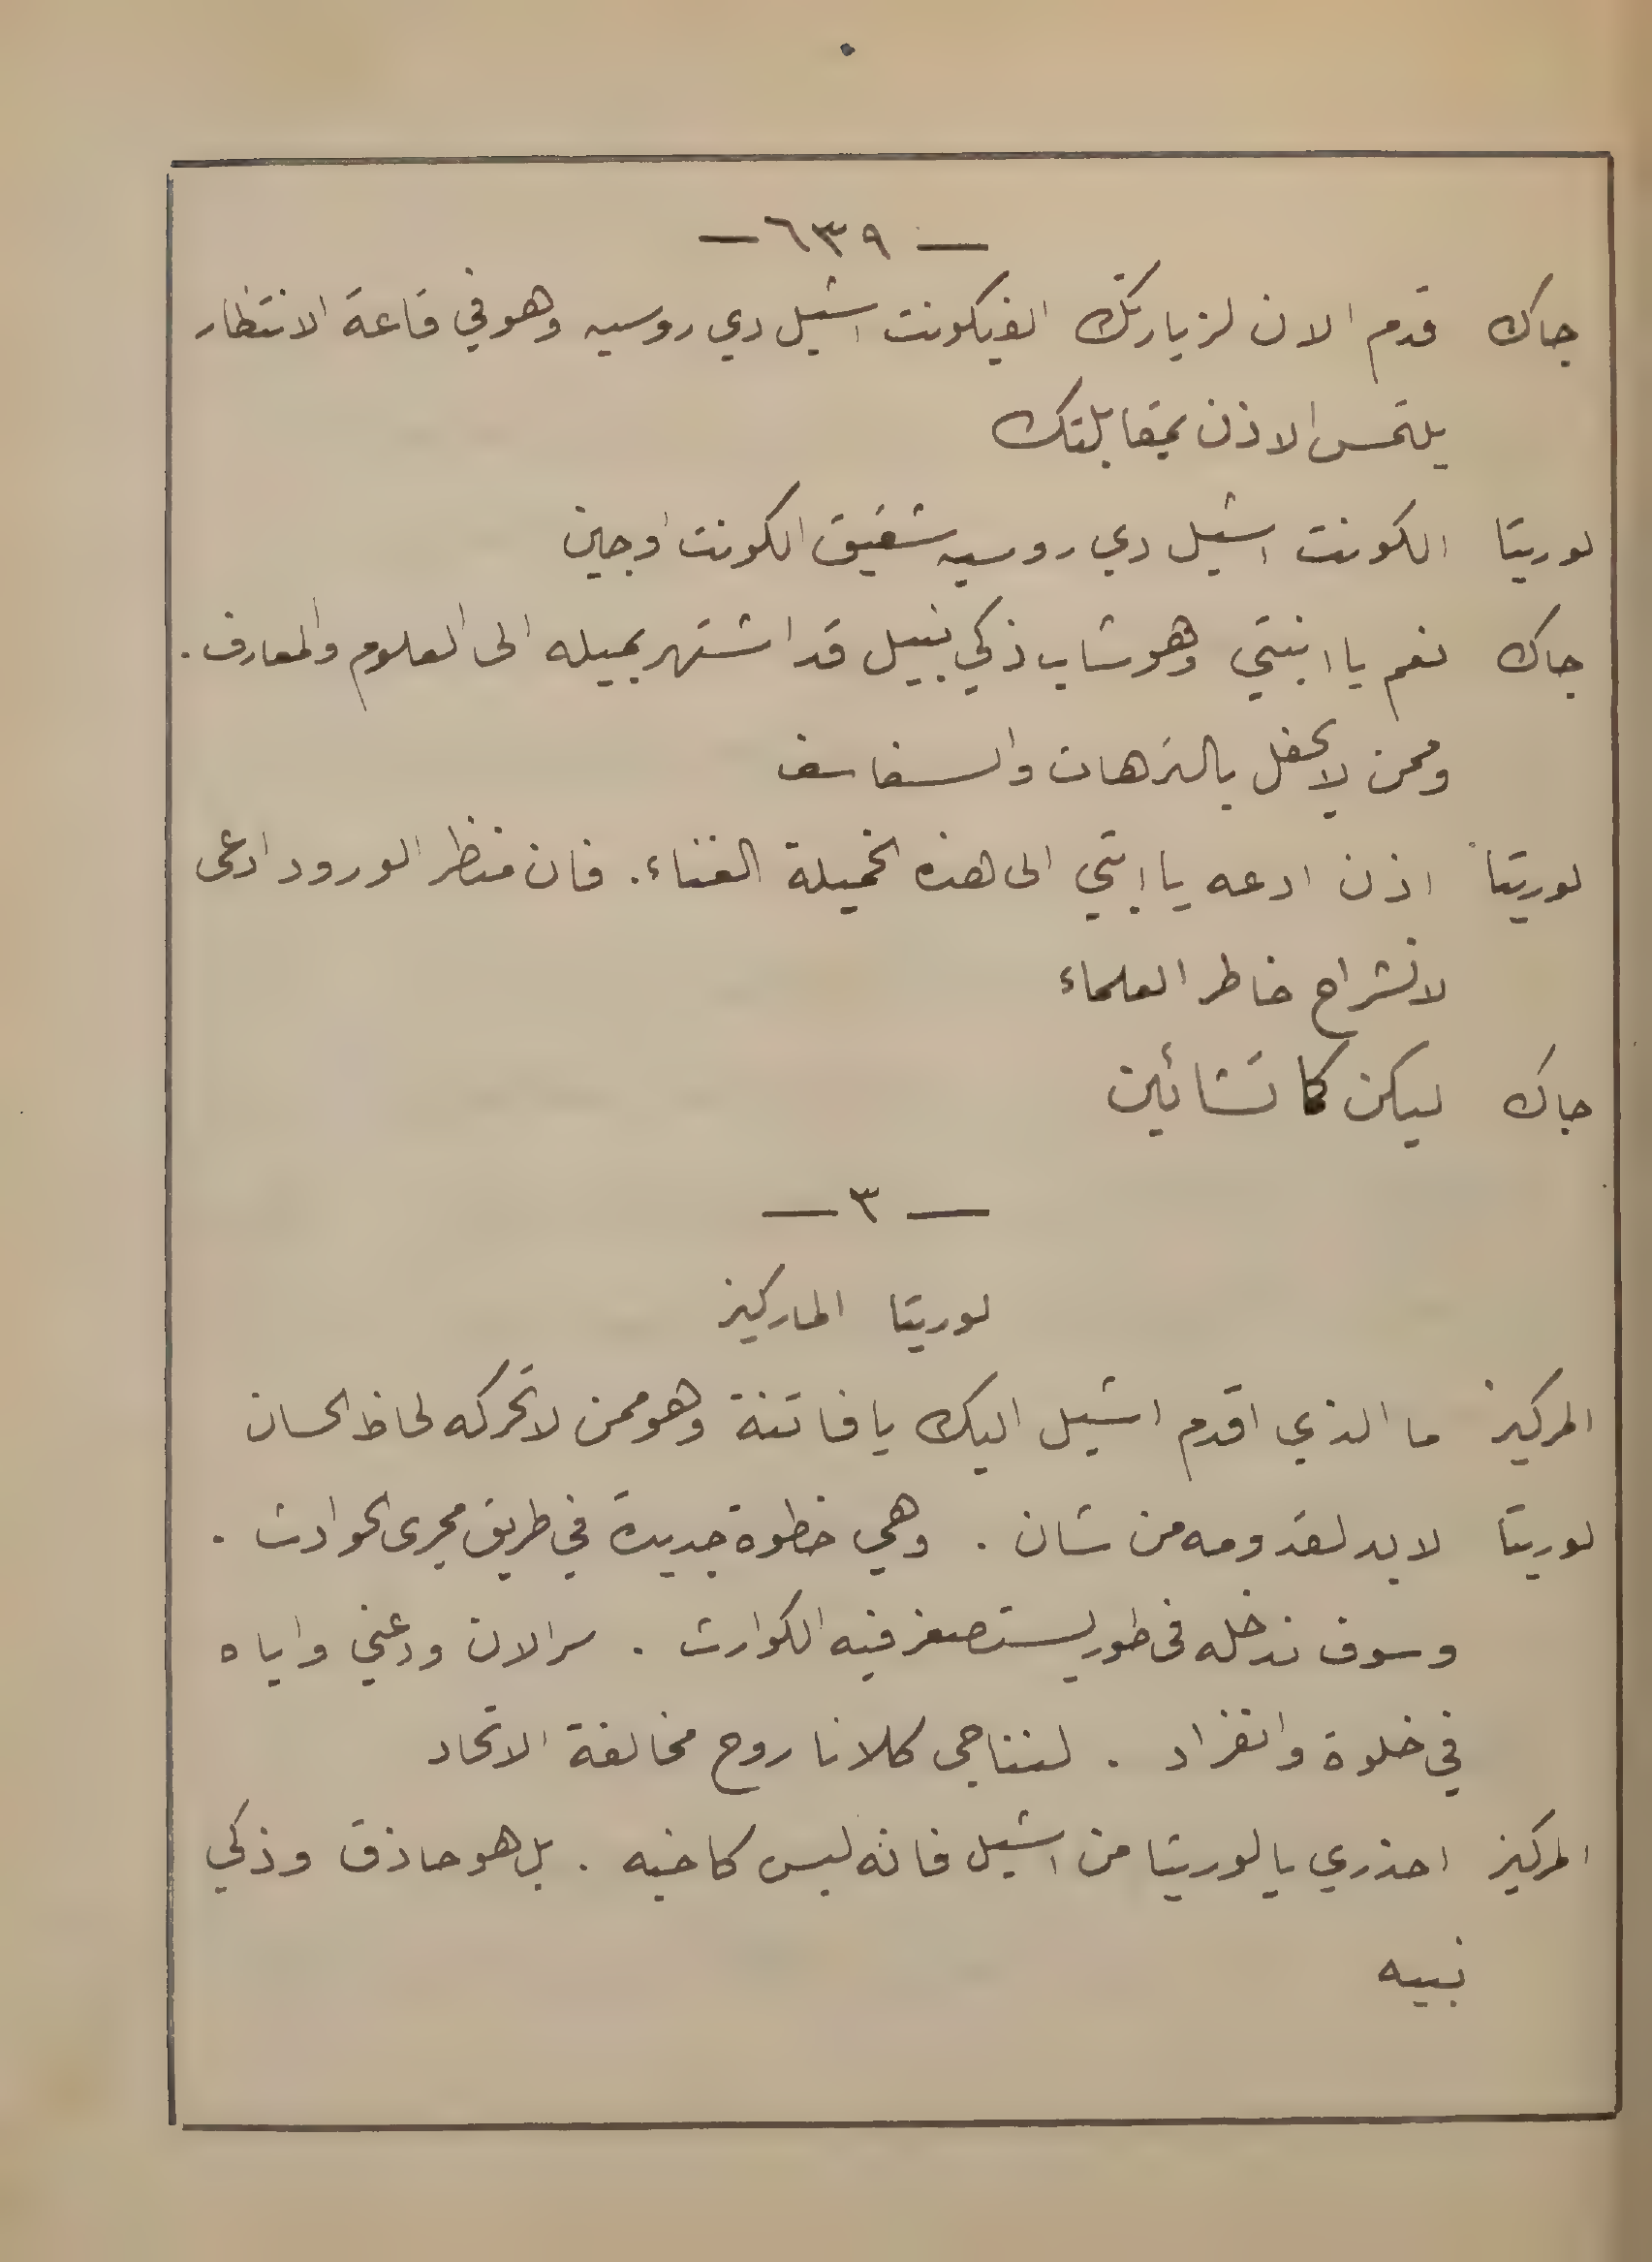 — ٦٣٩ —
جاك قدم الان لزيارتك الفيكونت اشيل دي روسيه وهو في قاعة الانتظار
يلتمس الاذن بمقابلتك
لوريتا الكونت اشيل دي روسيه شقيق الكونت اوجين
جاك نعم يا ابنتي وهو شاب ذكي نبيل قد اشتهر بميله الى العلوم والمعارف .
وممن لا يحفل بالترهات والسفاسف
لوريتا اذن ادعه يا ابتي الى هذه الخميلة الغناء . فان منظر الورود ادعى
لانشراح خاطر العلماء
جاك ليكن كما تشائين
— ٣ —
لوريتا الماركيز
المركيز ما الذي اقدم اشيل اليك يا فاتنة وهو ممن لا تحركه لحاظ الحسان
لوريتا لا بد لقدومه من شان . وهي خطوة جديدة في طريق مجرى الحوادث .
وسوف ندخله في طور يستصغر فيه الكوارث . سر الان ودعني واياه
في خلوة وانفراد . لنتناجى كلانا روح مخالفة الاتحاد
المركيز احذري يا لوريتا من اشيل فانه ليس كاخيه . بل هو حاذق وذكي
نبيه